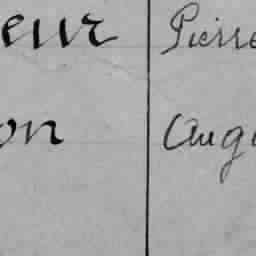 eur Pierre
on Aug